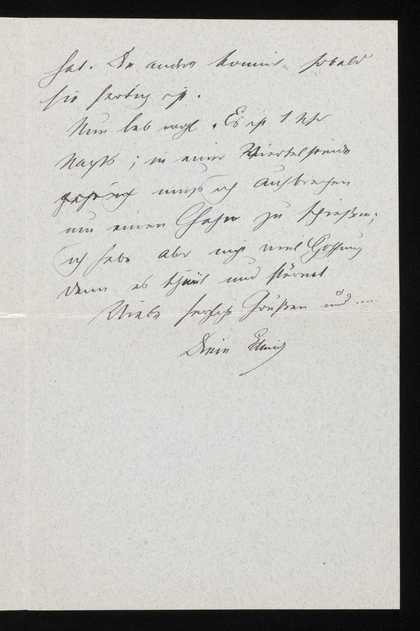 hat. Die andre kommt, sobald
sie fertig ist.
Nun leb wohl. Es ist 1 Uhr
Nachts; in einer Viertelstunde
muß ich aufbrechen
um einen Hahn zu schießen;
ich habe aber nicht viel Hoffnung
denn es und stürmt
Viele herzliche Grüße und ....
Dein